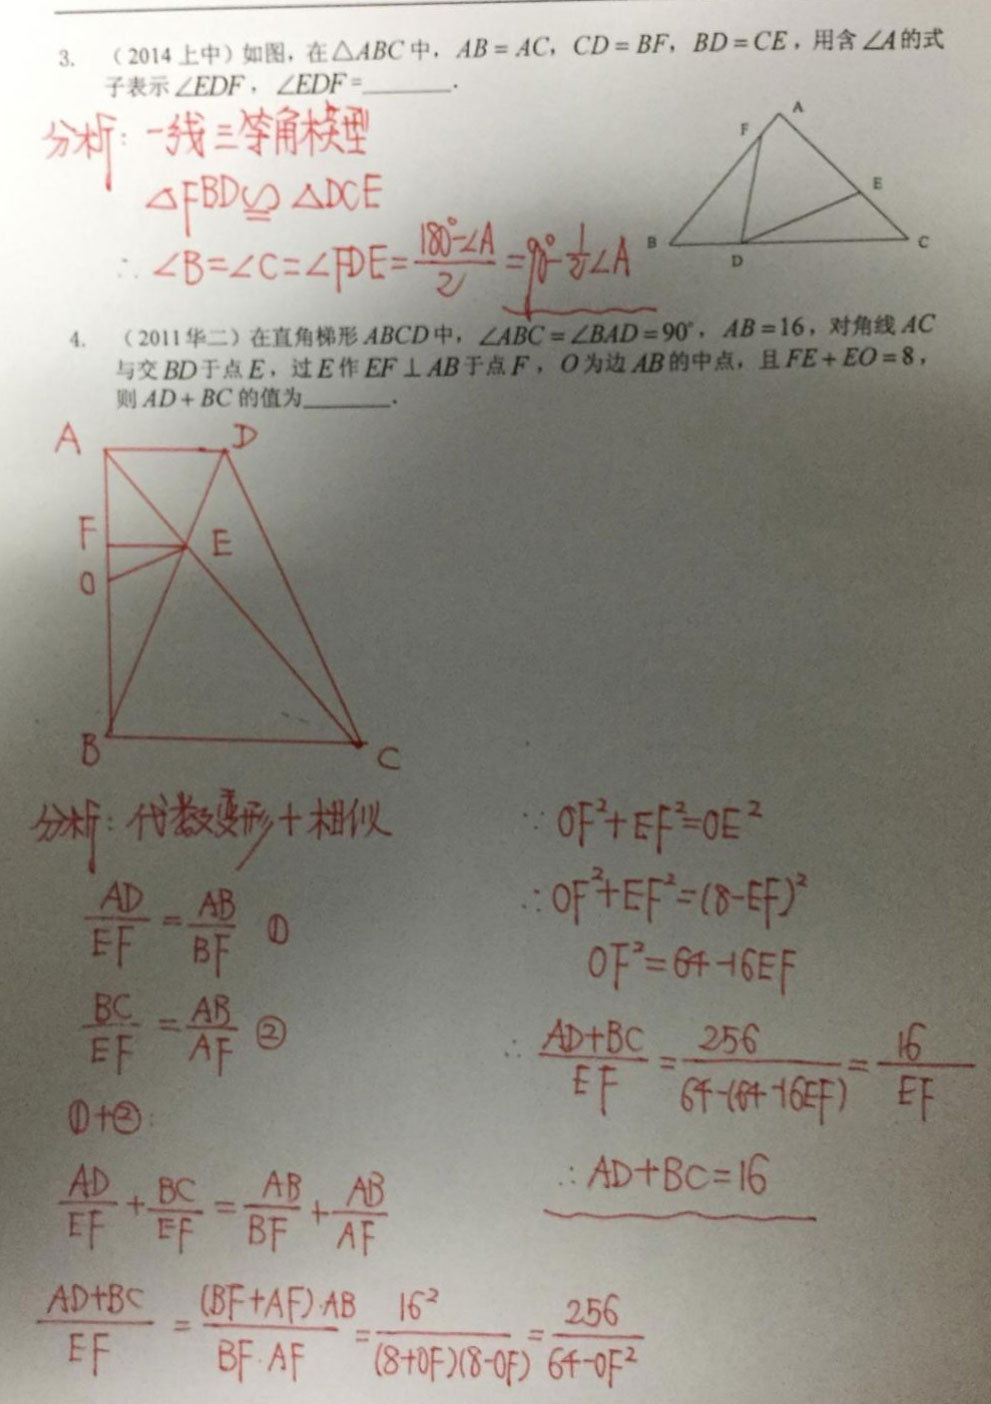 3. （2014上中）如图，在△ABC中，AB=AC，CD=BF，BD=CE，用含∠A的式
子表示∠EDF，∠EDF=______.
分析：一线三等角模型
△FBD≌△DCE
∴∠B=∠C=∠FDE=(180°-∠A)/2=90°-1/2∠A
A
F
E
B
D
C
4. （2011华二）在直角梯形ABCD中，∠ABC=∠BAD=90°，AB=16，对角线AC
与交BD于点E，过E作EF⊥AB于点F，O为边AB的中点，且FE+EO=8，
则AD+BC的值为______.
A
D
F
E
O
B
C
分析：代数变形+相似
AD/EF=AB/BF ①
BC/EF=AB/AF ②
①+②：
AD/EF+BC/EF=AB/BF+AB/AF
(AD+BC)/EF=(BF+AF)·AB/BF·AF=16²/(8+OF)(8-OF)=256/64-OF²
∵OF²+EF²=OE²
∴OF²+EF²=(8-EF)²
OF²=64-16EF
∴(AD+BC)/EF=256/64-(64-16EF)=16/EF
∴AD+BC=16